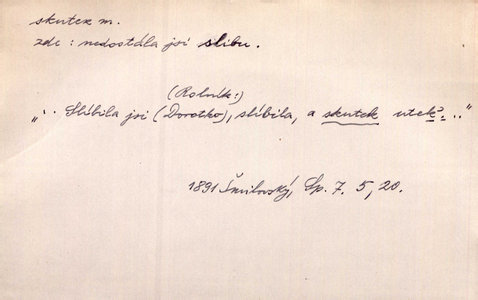 skutek m.
zde: nedostála jsi slibu.
(Rolník:)
"․․ Slíbila jsi (Dorotko), slíbila, a skutek utek? ..."
1891 Šmilovský, Sp. 7. 5, 20.